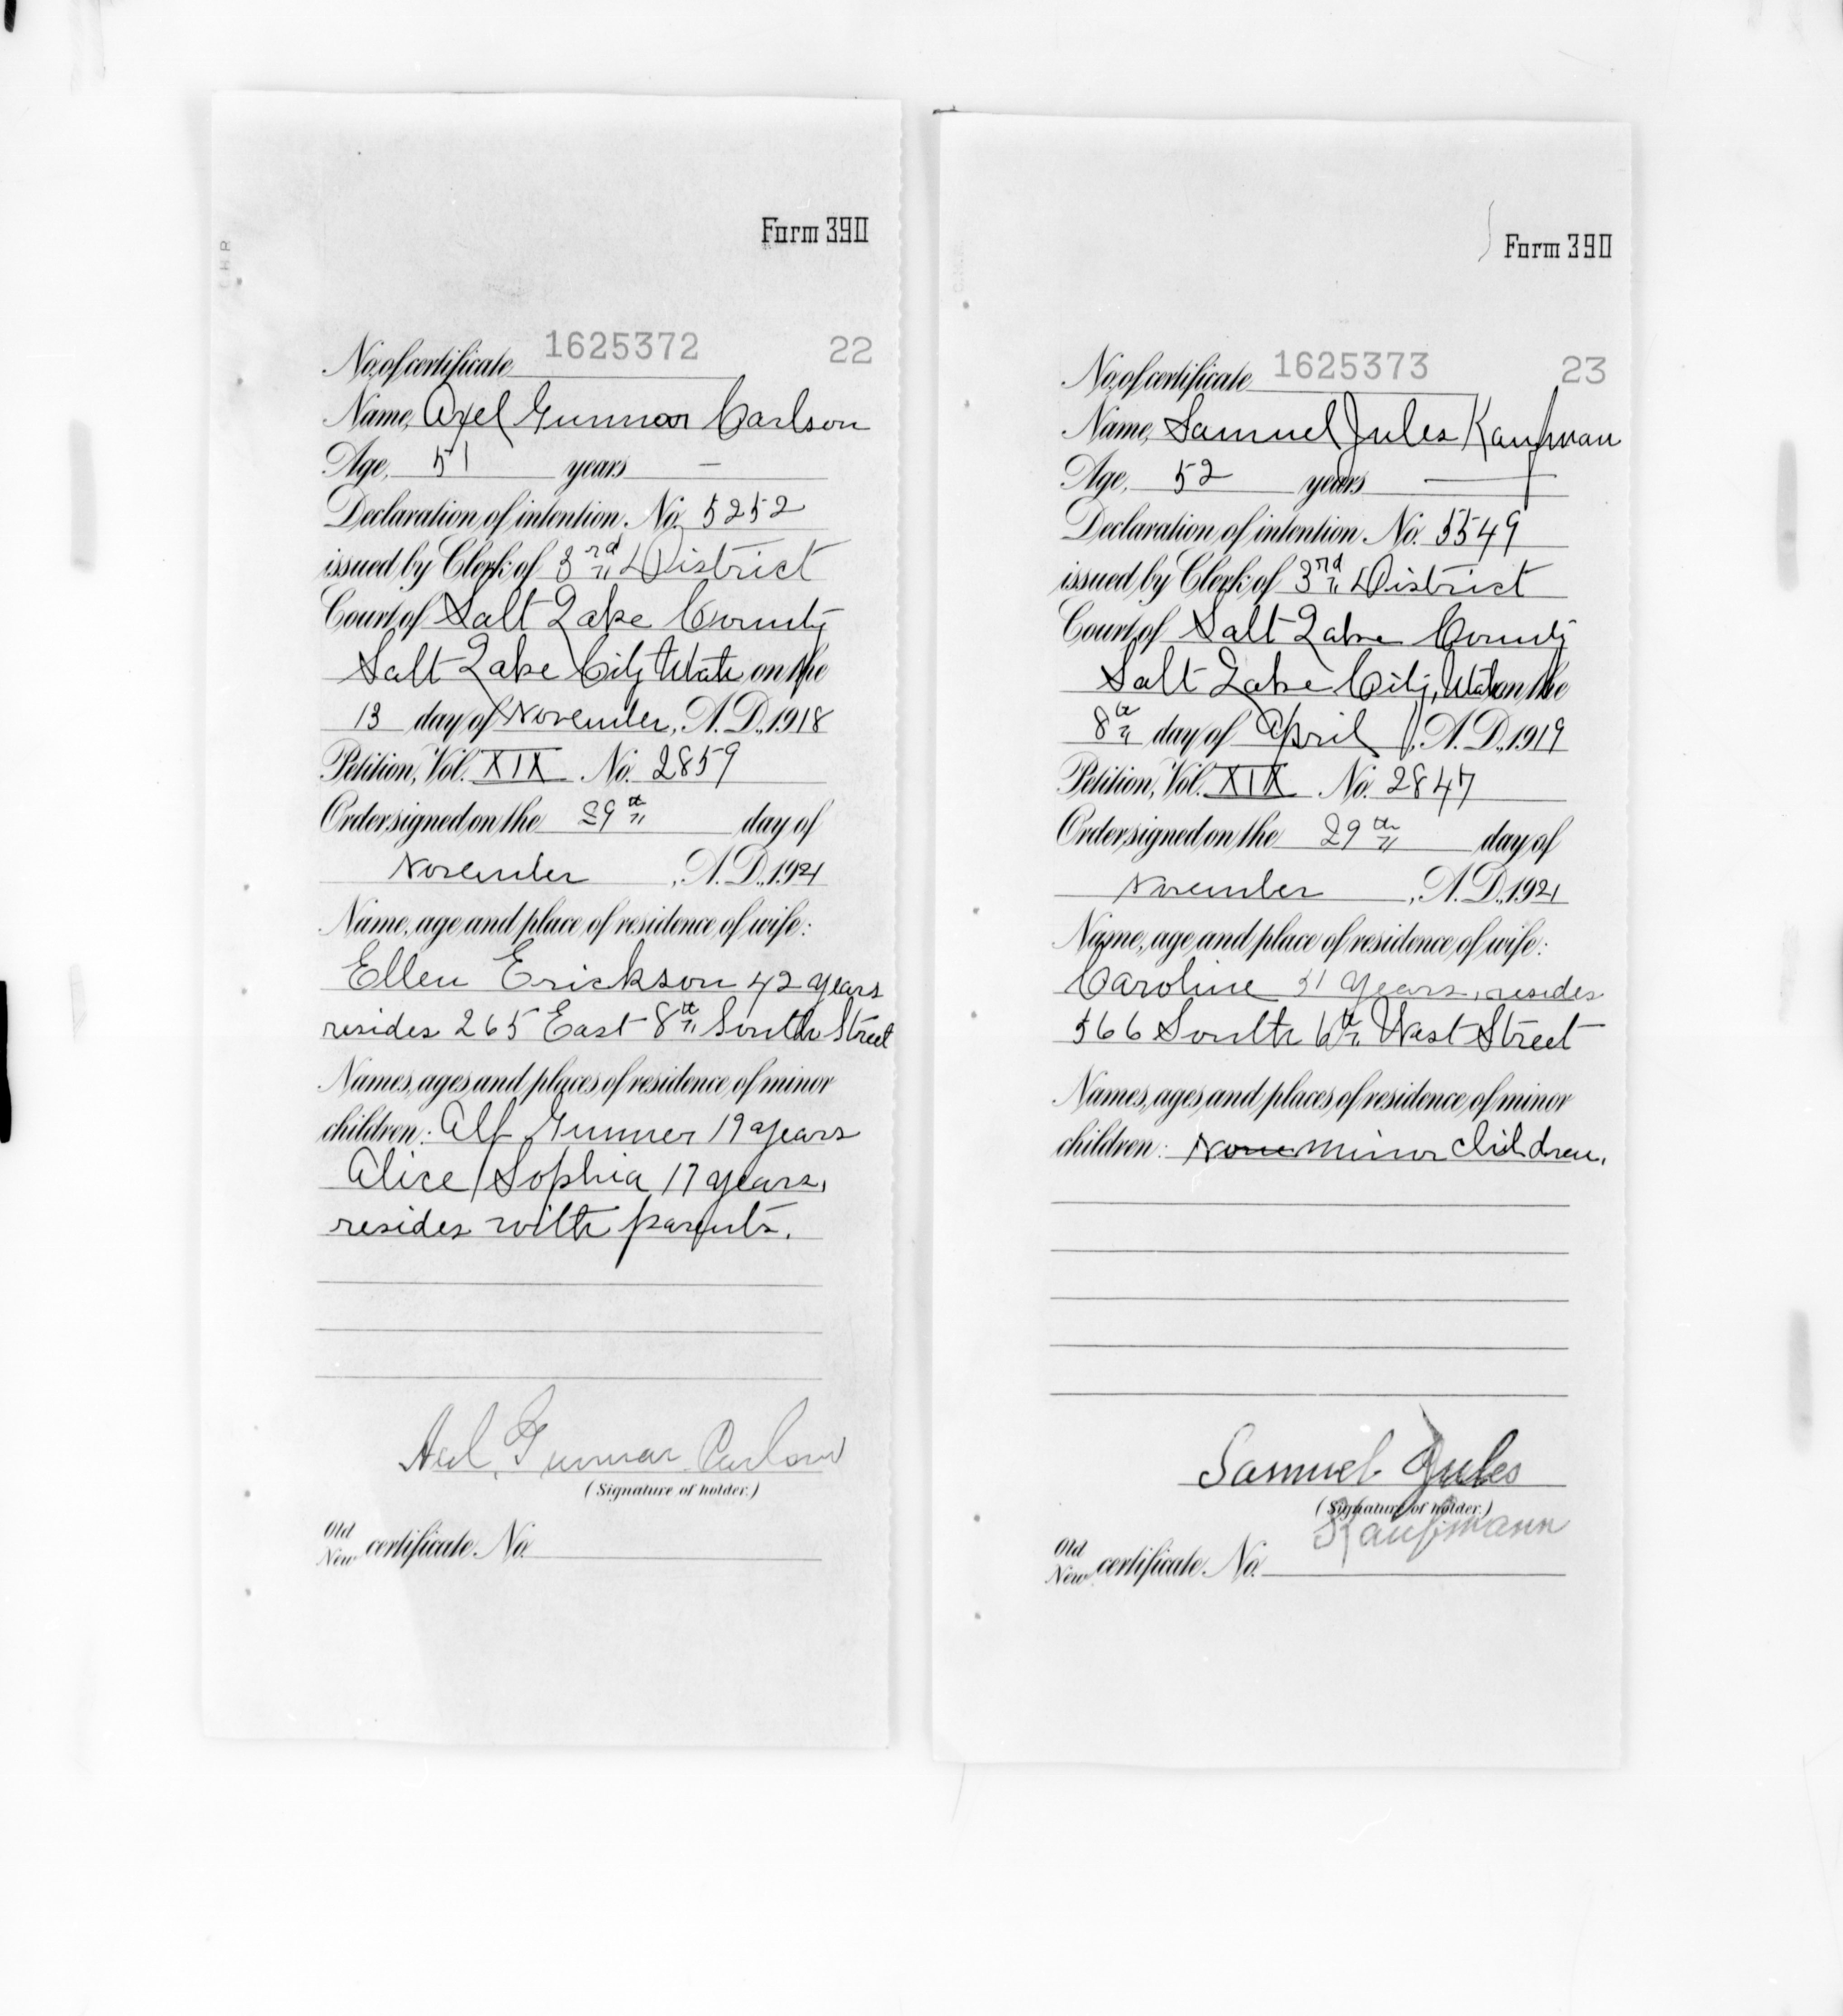 Form 390
No. of certificate 1625372 22
Name, Axel Gunnar Carlson
Age, 51 years —
Declaration of intention No. 5252
issued by Clerk of 3rd District
Court of Salt Lake County
Salt Lake City Utah on the
13 day of November, A.D., 1918
Petition, Vol. XIX No. 2859
Order signed on the 29th day of
November, A.D., 1921
Name, age and place of residence of wife:
Ellen Erickson 42 years
resides 265 East 8th South Street
Names, ages and places of residence of minor
children: Alf Gunner 19 years
Alice Sophia 17 years,
resides with parents.
Axel Gunnar Carlson
(Signature of holder.)
Old
New certificate No.
Form 390
No. of certificate 1625373 23
Name, Samuel Jules Kaufman
Age, 52 years —
Declaration of intention No. 5549
issued by Clerk of 3rd District
Court of Salt Lake County
Salt Lake City, Utah on the
8th day of April, A.D., 1919
Petition, Vol. XIX No. 2847
Order signed on the 29th day of
November, A.D., 1921
Name, age and place of residence of wife:
Caroline 51 years, resides
566 South 6th West Street
Names, ages and places of residence of minor
children: None minor children.
Samuel Jules
(Signature of holder.)
Kaufmann
Old
New certificate No.